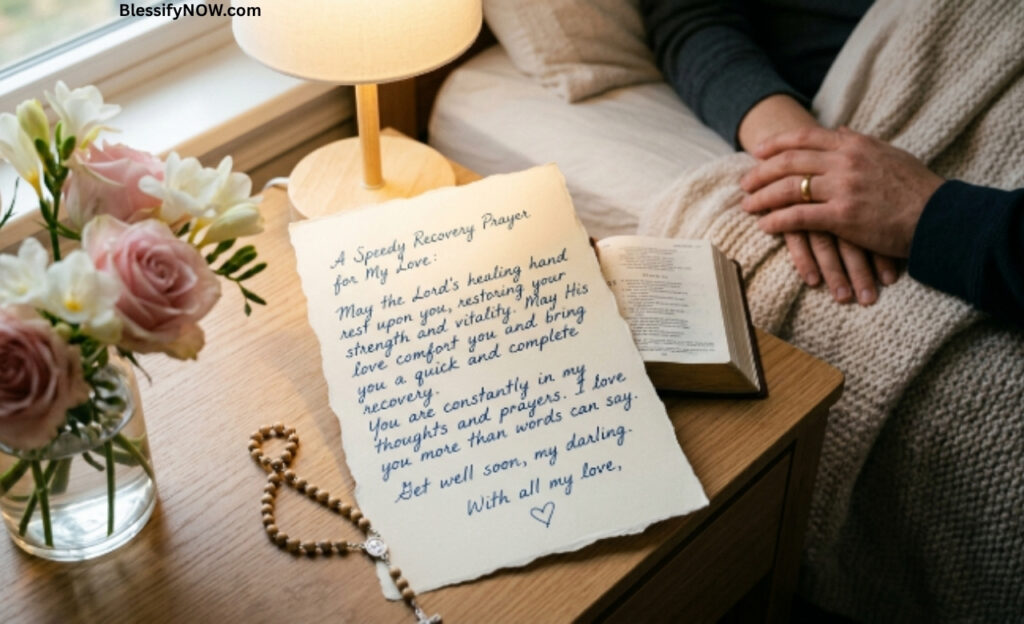 BlessifyNOW.com
A Speedy Recovery Prayer
for My Love:
May the Lord's healing hand
rest upon you, restoring your
strength and vitality. May His
love comfort you and bring
you a quick and complete
recovery.
You are constantly in my
thoughts and prayers. I love
you more than words can say.
Get well soon, my darling.
With all my love,